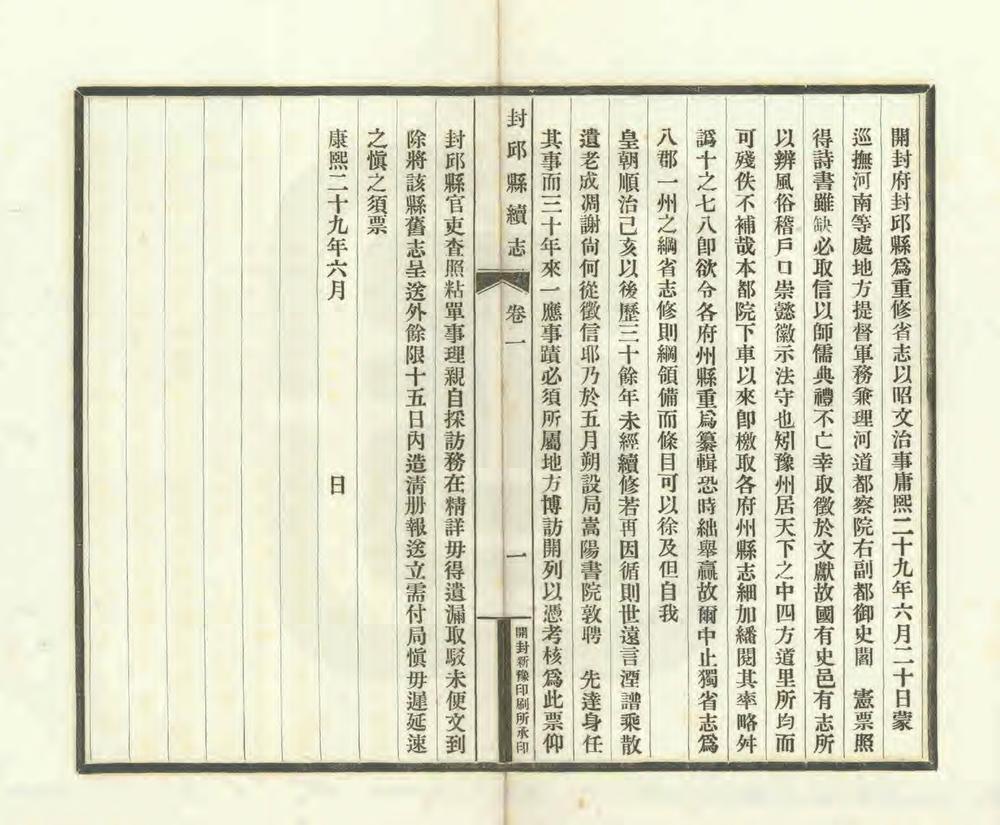 開封府封邱縣爲重修省志以昭文治事庸熙二十九年六月二十日蒙
巡撫河南等處地方提督軍務兼理河道都察院右副都御史閻　憲票照
得詩書雖缺必取信以師儒典禮不亡幸取徵於文獻故國有史邑有志所
以辨風俗稽戶口崇懿徽示法守也矧豫州居天下之中四方道里所均而
可殘佚不補哉本都院下車以來卽檄取各府州縣志細加繙閱其率略舛
譌十之七八卽欲令各府州縣重爲纂輯恐時絀舉贏故爾中止獨省志爲
八郡一州之綱省志修則綱領備而條目可以徐及但自我
皇朝順治己亥以後歷三十餘年未經續修若再因循則世遠言湮譜乘散
遺老成凋謝尙何從徵信耶乃於五月朔設局嵩陽書院敦聘　先達身任
其事而三十年來一應事蹟必須所屬地方博訪開列以憑考核爲此票仰
封邱縣續志　卷一　一　開封新豫印刷所承印
封邱縣官吏查照粘單事理親自採訪務在精詳毋得遺漏取駁未便文到
除將該縣舊志呈送外餘限十五日內造淸册報送立需付局愼毋遲延速
之愼之須票
康熙二十九年六月　日